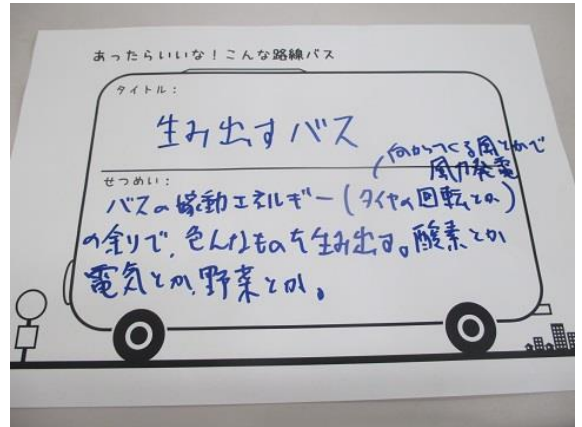 あったらいいな！こんな路線バス
タイトル：
生み出すバス
向かってくる風とかで
風力発電
せつめい：
バスの稼動エネルギー(タイヤの回転とか)
の余りで、色んなものを生み出す。酸素とか
電気とか、野菜とか。